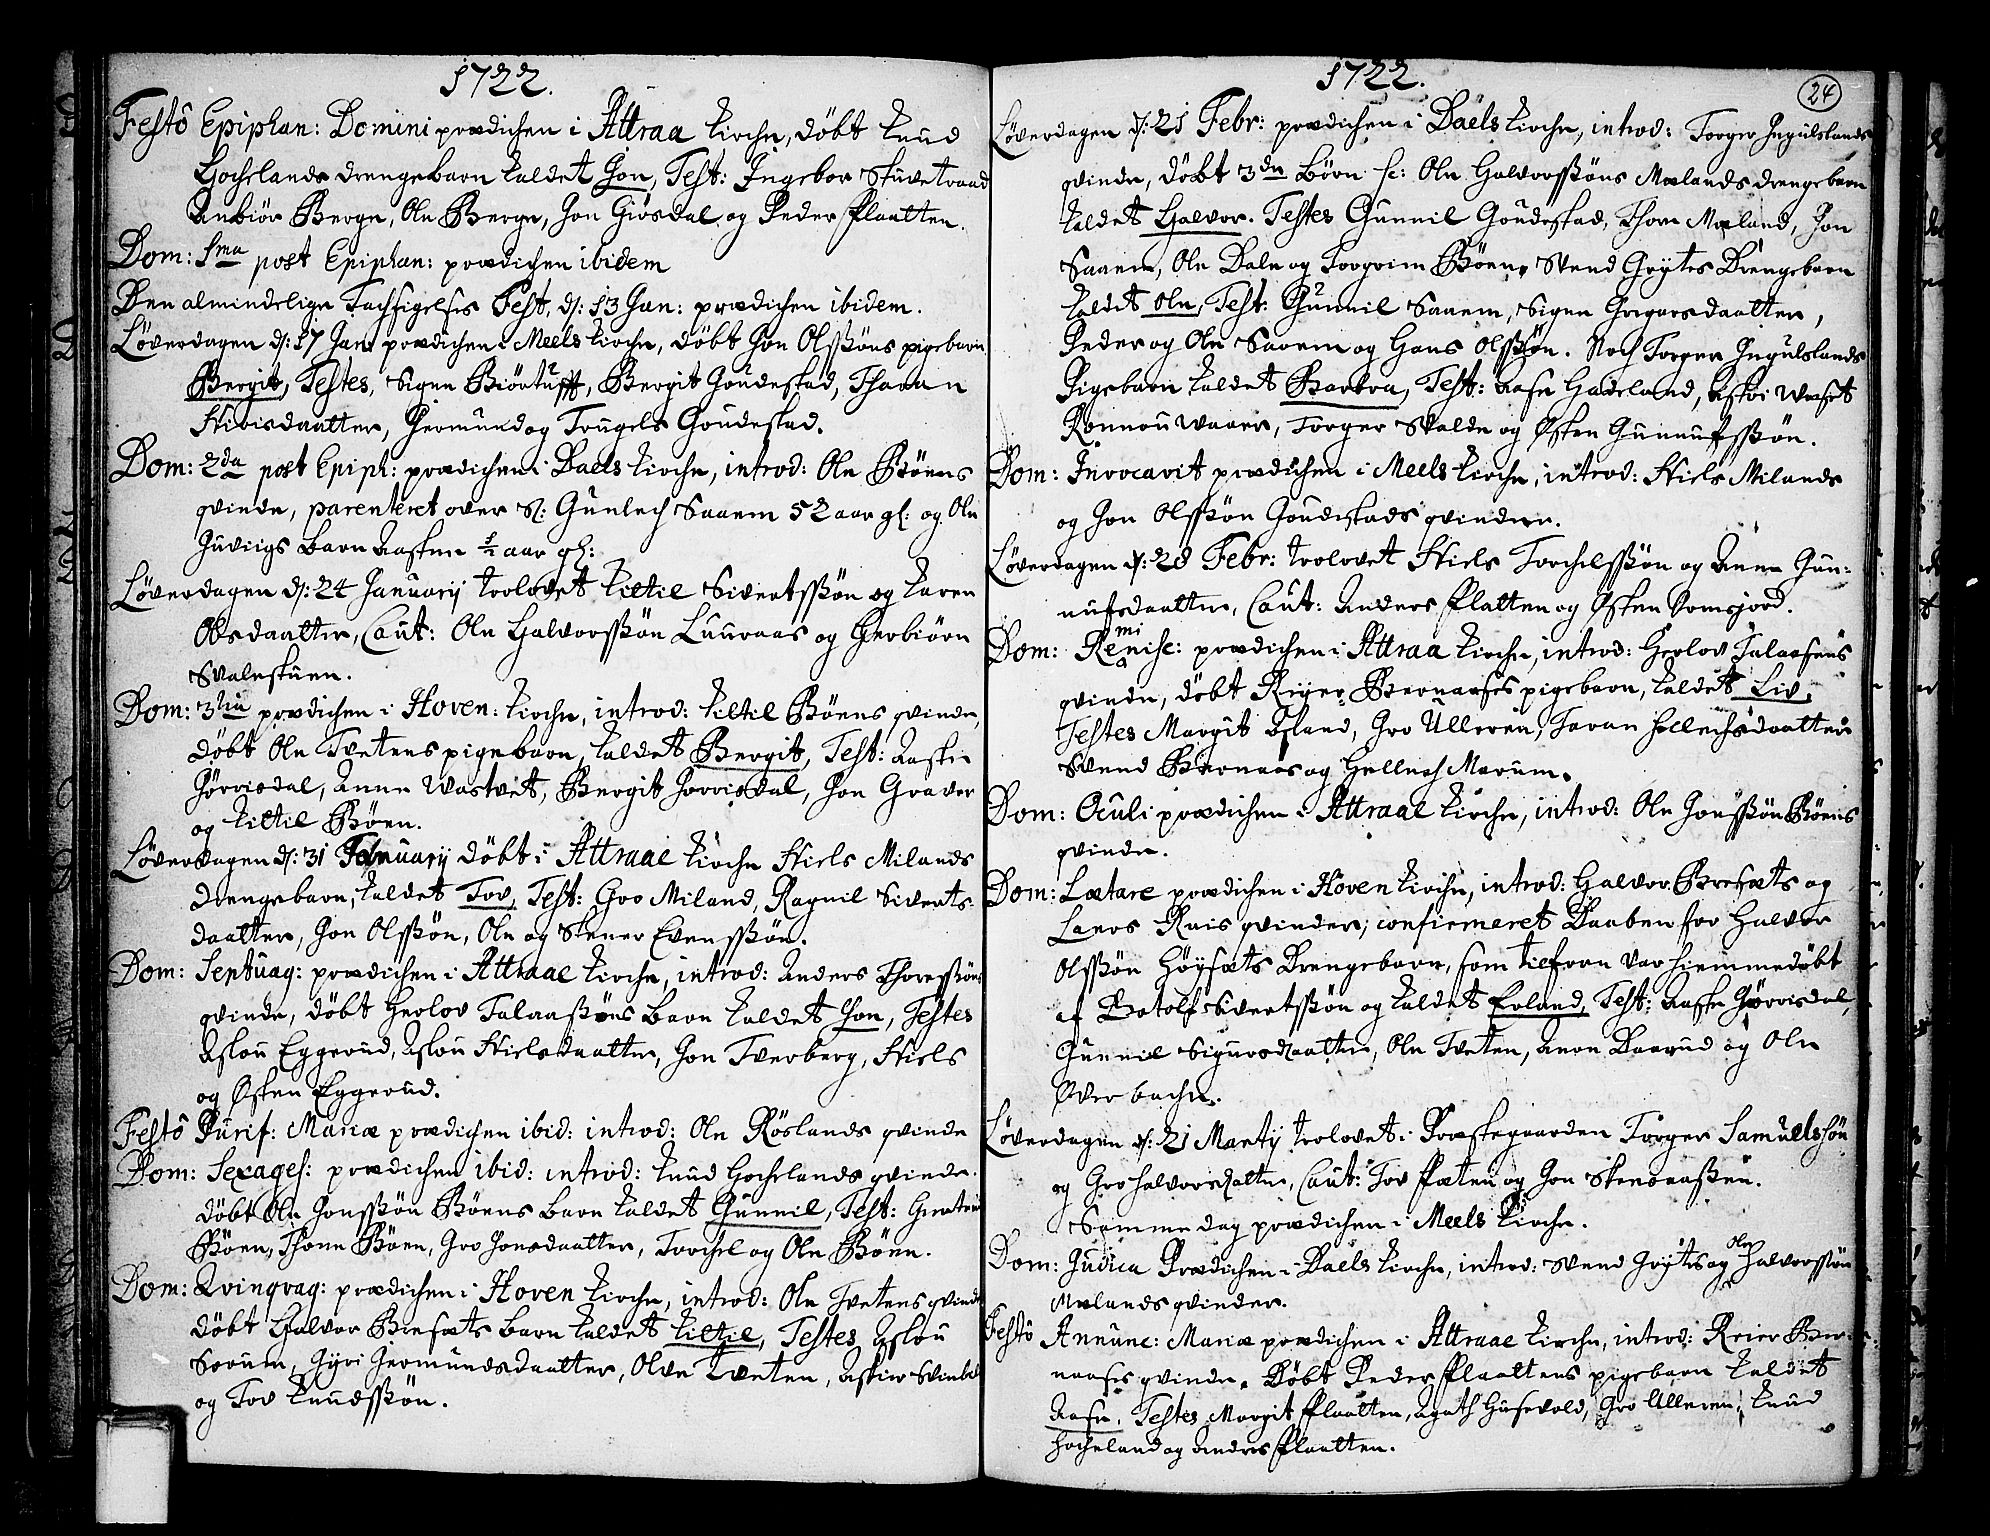 1722.
Festô Epiphan: Domini prædichen i Attraa Kirche, döbt Knud
Hochelands drengebarn kaldet Jon, Test: Ingebor Stuvetraad
Anbiör Berge, Ole Berge, Jon Giösdal og Peder Plaatten.
Dom: 1ma post Epiphan: prædichen ibidem
Den almindelige Tachsigelses Fest, d: 13 Jan: prædichen ibidem.
Löverdagen d: 17 Jan: prædichen i Meels Kirche, döbt Jon Olssöns pigebarn
Bergit, Testes, Sigen Biörtufft, Bergit Goudestad, Tharan
Nirisdaatter, Germund og Trugels Goudestad.
Dom: 2da post Epiph: prædichen i Daels Kirche, introd: Ole Böens
qvinde, parenteret over S: Gunlech Saaem 52 aar gl: og Ole
Guviigs barn Aasten ½ aar gl:
Löverdagen d: 24 January trolovet Kittil Sivertssön og Karen
Olsdaatter, Caut: Ole Halvorssön Luuraas og Herbiörn
Svalestuen.
Dom: 3tia prædichen i Hoven: Kirche, introd: Kittil Böens qvinde,
döbt Ole Tvetens pigebarn kaldet Bergit, Test: Aaste
Jörrisdal, Anne Wastvet, Bergit Jorrisdal, Jon Graver
og Kittil Böen.
Löverdagen d: 31 January döbt i Attraae Kirche Niels Milands
drengebarn, kaldet Tov, Test: Gro Miland, Ragnil Siverts-
daatter, Jon Olssön, Ole og Stener Evenssön.
Dom: Septuag: prædichen i Attraae Kirche, introd: Anders Thoressöns
qvinde, döbt Herlov Talaassöns barn kaldet Jon, Testes
Aslou Eggerud, Aslou Nielsdaatter, Jon Tverberg, Niels
og Østen Eggerud.
Festô Purif: Mariæ prædichen ibid: introd: Ole Röslands qvinde
Dom: Sexages: prædichen ibid: introd: Knud Hochelands qvinde.
döbt Ole Jonssön Böens barn kaldet Gunnil, Test: Gunil
Böen, Thone Böen, Gro Jonsdaatter, Torchel og Ole Böen.
Dom: Qvinqvag: prædichen i Hoven Kirche, introd: Ole Tvetens qvinde
döbt Halvor Bresæts barn kaldet Kittil, Testes Aslou
Sorum, Gyri Germundsdaatter, Olve Tveten, Astier
og Tov Knudssön.
1722.
24
Löverdagen d: 21 Febr: prædichen i Daels Kirche, introd: Torger Ingulslands
qvinde, döbt 3de Börn sc: Ole Halvorssöns Mælands drengebarn
kaldet Halvor. Testes Gunnil Goudestad, Thore Mæland, Jon
Saaem, Ole Dale og Torgrim Böen, Svend Grytes Drengebarn
kaldet Ole, Test: Gunnil Saaem, Sigen Gregarsdaatter,
Peder og Ole Saaem og Hans Olssön. Noch Torger Ingulslands
Pigebarn kaldet Barbra, Test: Aase Hadeland, Astri Waset
Ronnou Waaer, Torger Svalde og Østen Gunnufssön.
Dom: Invocavit prædichen i Meels Kirche, introd: Niels Milands
og Jon Olssön Goudestads qvinder.
Löverdagen d: 28 Febr: trolovet Niels Torchelssön og Anne Gun-
nufsdaatter, Caut: Anders Platten og Østen Romsjord.
Dom: Reminisc: prædichen i Attraa Kirche, introd: Herlov Talaasens
qvinde, döbt Reyer Bernaases pigebarn, kaldet Liv,
Testes Margit Øland, Gro Ulleren, Taran Hellechsdaatter
Svend Bernaas og Hellech Marum.
Dom: Oculi prædichen i Attraae Kirche, introd: Ole Jonssön Böens
qvinde.
Dom: Lætare prædichen i Hoven Kirche, introd: Halvor Bresæts og
Laers Ruis qvinder; confirmeret Daaben for Halvor
Olssön Höysæts Drengebarn, som tilforn var hiemmedöbt
af Botolf Sivertssön og kaldet Erland, Test: Aaste Jörrisdal,
Gunnil Sigursdaatter, Ole Tveten, Aven Daarud og Ole
Over bache.
Löverdagen d: 21 Marty trolovet i Præstegaarden Torger Samuelssön
og Gro Halvorsdatter, Caut: Tov Fæten og Jon Stensaassen.
Samme dag prædichen i Meels Kirche.
Dom: Judica Prædichen i Daels Kirche, introd: Svend Grytes og Ole Halvorssön
Mælands qvinder.
Festô Annunc: Mariæ prædichen i Attraae Kirche, introd: Reier Ber-
naases qvinde. Döbt Peder Plaattens pigebarn kaldet
Aase, Testes Margit Plaatten, Agath Husevold, Gro Ulleren, Knud
Hocheland og Anders Plaatten.